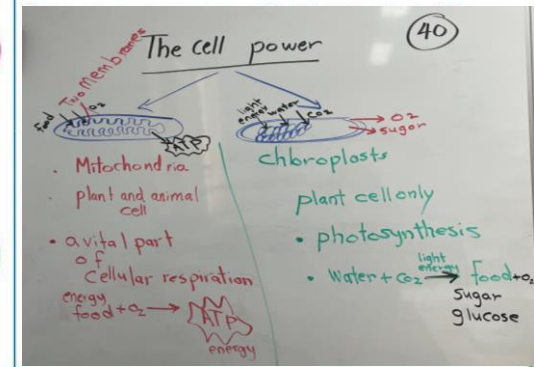 The cell power
40
Two membranes
food
O2
ATP
light
energy
water
CO2
O2
sugar
• Mitochondria
• plant and animal
cell
• a vital part
of
Cellular respiration
energy
food + O2 → ATP
energy
chbroplasts
plant cell only
• photosynthesis
• Water + CO2 light energy → food + O2
sugar
glucose